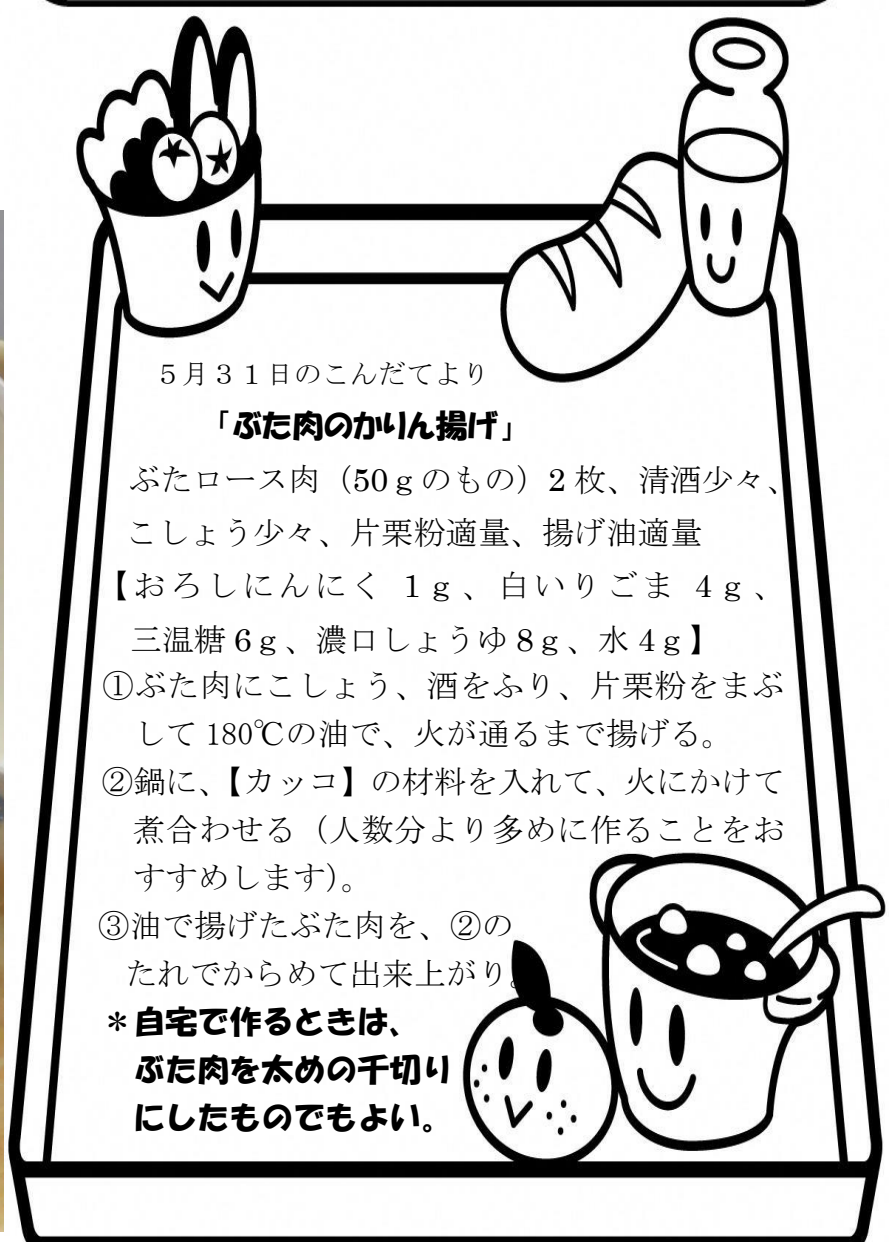 ５月３１日のこんだてより
「ぶた肉のかりん揚げ」
ぶたロース肉（50ｇのもの）2枚、清酒少々、
こしょう少々、片栗粉適量、揚げ油適量
【おろしにんにく 1ｇ、白いりごま 4ｇ、
三温糖 6ｇ、濃口しょうゆ 8ｇ、水 4ｇ】
①ぶた肉にこしょう、酒をふり、片栗粉をまぶ
して 180℃の油で、火が通るまで揚げる。
②鍋に、【カッコ】の材料を入れて、火にかけて
煮合わせる（人数分より多めに作ることをお
すすめします）。
③油で揚げたぶた肉を、②の
たれでからめて出来上がり。
＊自宅で作るときは、
ぶた肉を太めの千切り
にしたものでもよい。